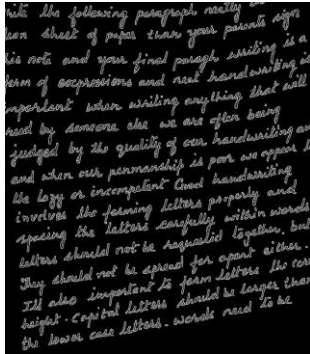 the following paragraph neatly on
sheet of paper than your parents sign
this note and your final paragh writing is a
form of expressions and neat handwriting is
important when writing anything that will
read by someone else we are often being
judged by the quality of our handwriting an
and when our penmanship is poor we appear
the lazy or incompetent Good handwriting
involves the forming letters properly and
spacing the letters carefully within words
letters should not be together, but
They should not be spread for apart either.
Ill also important to form letters the corr
height. Capital letters should be larger than
the lower case letters. words need to be